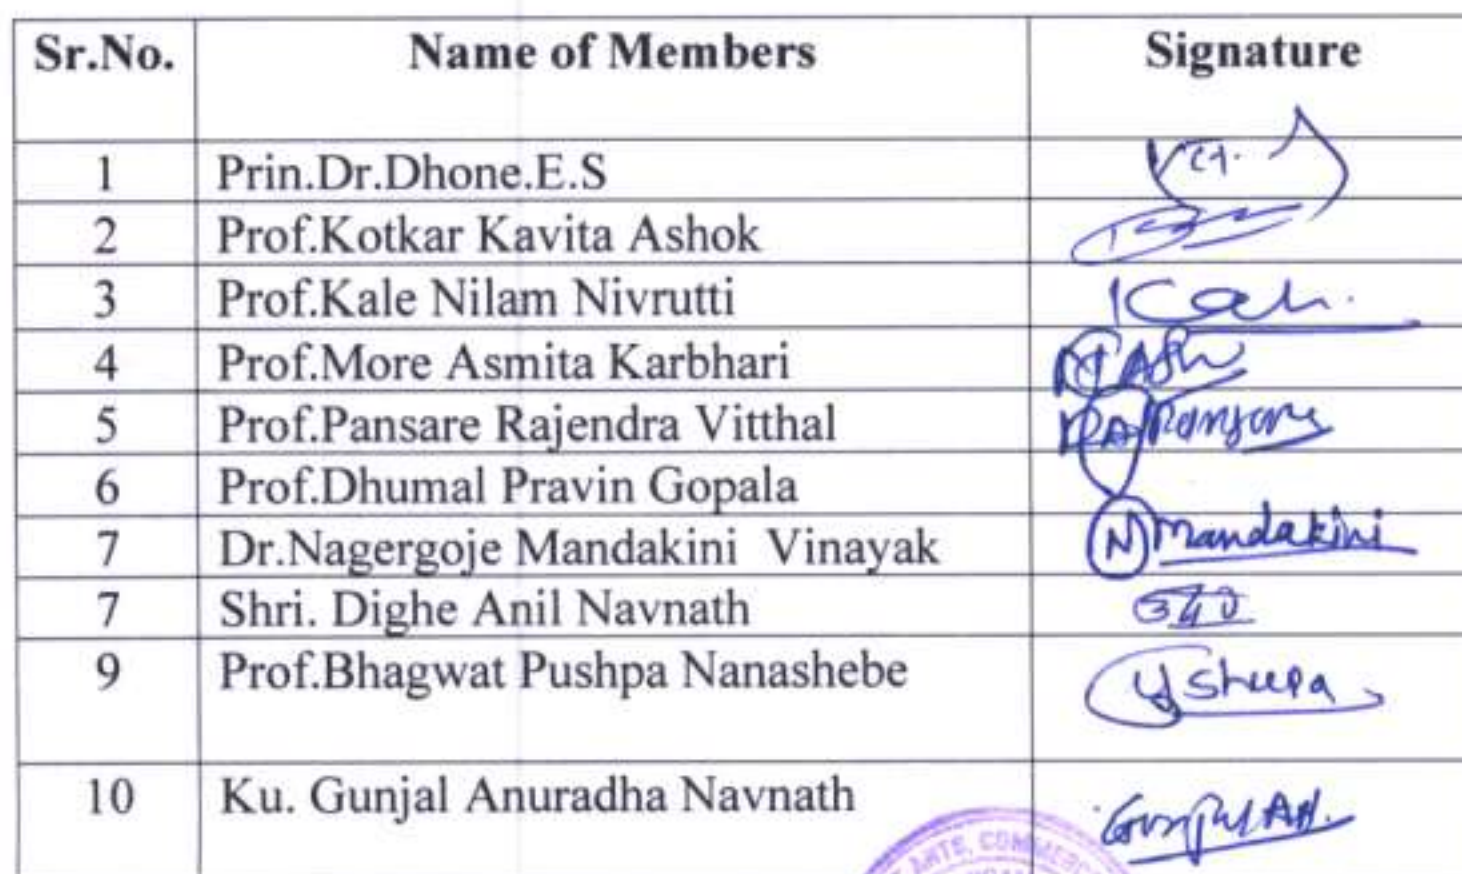 Sr.No. Name of Members Signature
1 Prin.Dr.Dhone.E.S
2 Prof.Kotkar Kavita Ashok
3 Prof.Kale Nilam Nivrutti
4 Prof.More Asmita Karbhari
5 Prof.Pansare Rajendra Vitthal Pansare
6 Prof.Dhumal Pravin Gopala
7 Dr.Nagergoje Mandakini Vinayak N Mandakini
7 Shri. Dighe Anil Navnath
9 Prof.Bhagwat Pushpa Nanashebe
10 Ku. Gunjal Anuradha Navnath
ARTS, COMMERCE